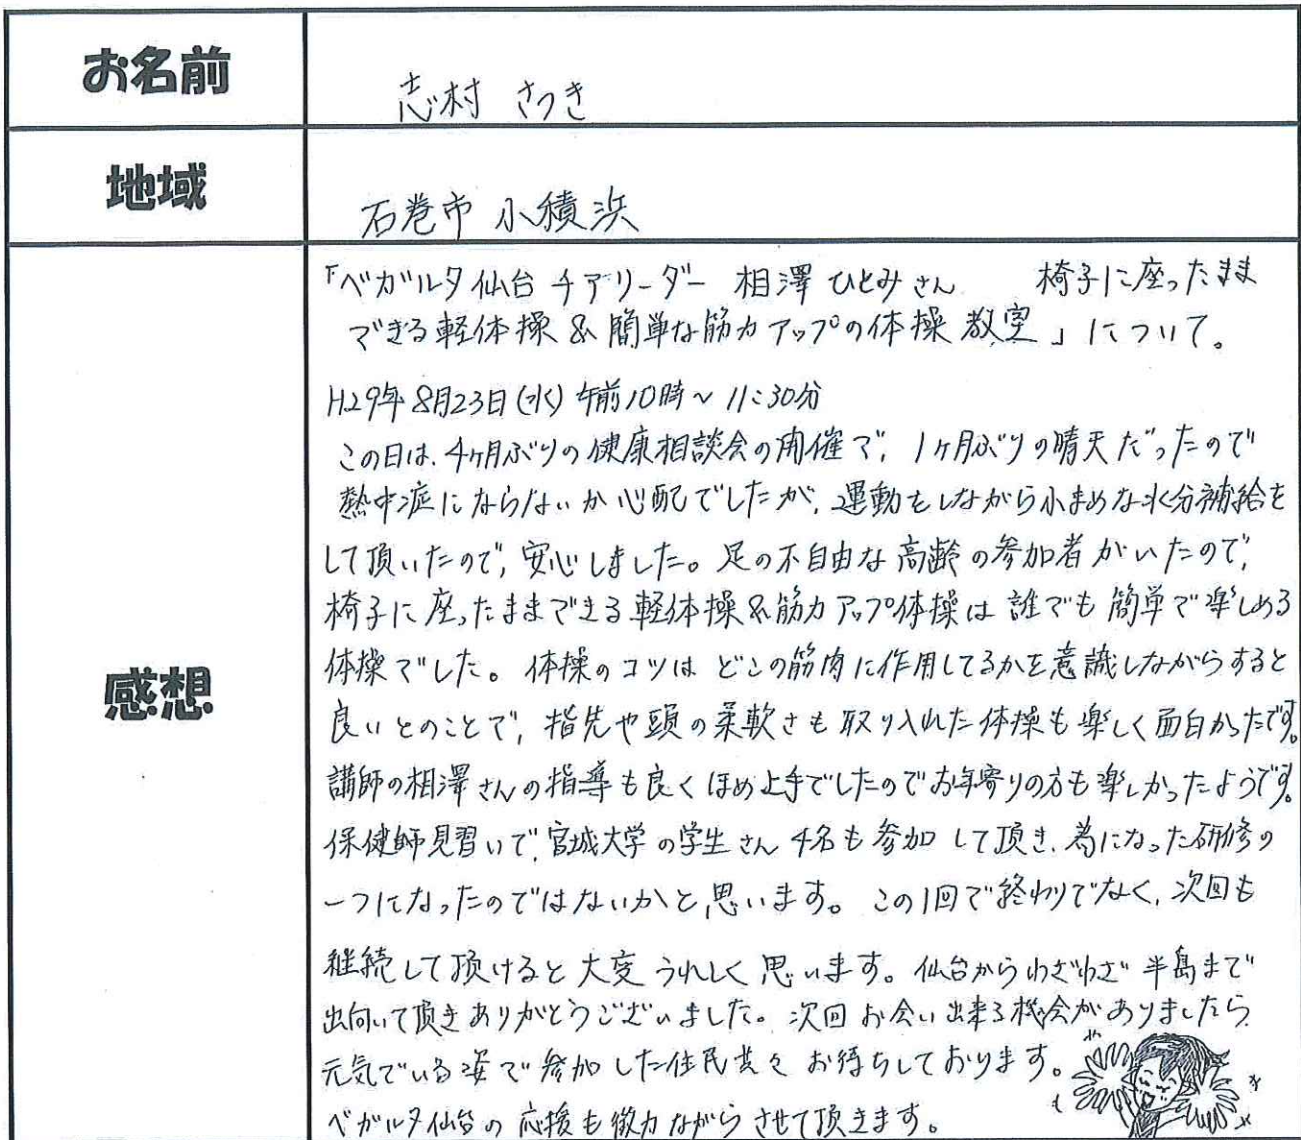 お名前
志村 さつき
地域
石巻市 小積浜
感想
「ベガルタ仙台 チアリーダー 相澤 ひとみ さん 椅子に座ったまま
できる軽体操 & 簡単な筋力アップの体操 教室」について。
H29年8月23日(水) 午前10時~11:30分
この日は、4ヶ月ぶりの健康相談会の開催で、1ヶ月ぶりの晴天だったので
熱中症にならないか心配でしたが、運動をしながら小まめな水分補給を
して頂いたので、安心しました。足の不自由な高齢の参加者がいたので、
椅子に座ったままできる軽体操&筋力アップ体操は誰でも簡単で楽しめる
体操でした。体操のコツはどこの筋肉に作用してるかを意識しながらすると
良いとのことで、指先や頭の柔軟さも取り入れた体操も楽しく面白かったです。
講師の相澤さんの指導も良くほめ上手でしたのでお年寄りの方も楽しかったようです。
保健師見習いで、宮城大学の学生さん4名も参加して頂き、為になった研修の
一つになったのではないかと思います。この1回で終わりでなく、次回も
継続して頂けると大変うれしく思います。仙台からわざわざ半島まで
出向いて頂きありがとうございました。次回お会い出来る機会がありましたら
元気でいる姿で参加した住民共々お待ちしております。
ベガルタ仙台の応援も微力ながらさせて頂きます。